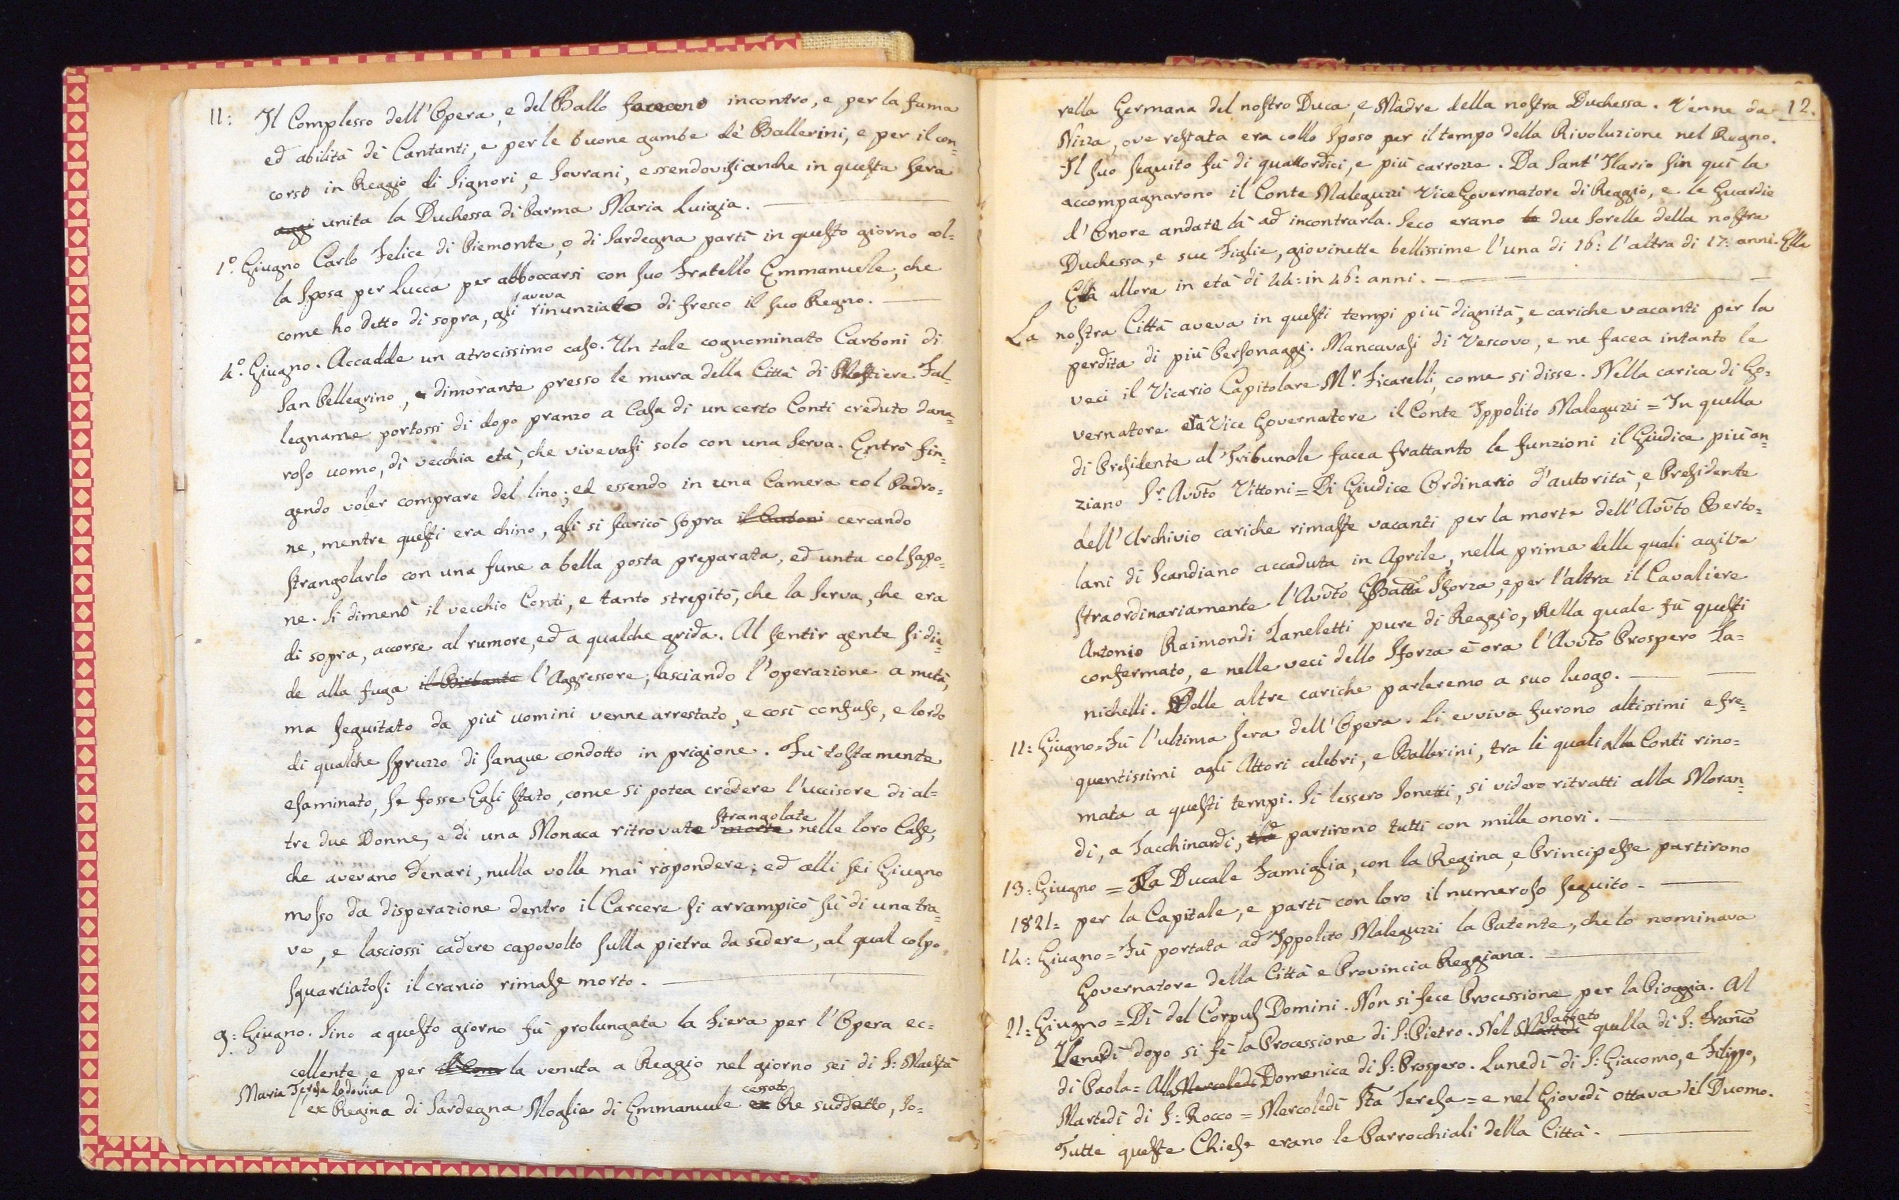 11: Il Complesso dell'Opera, e del Ballo facecono incontro, e per la fama
ed abilità dè Cantanti, e per le buone gambe dè Ballerini, e per il con=
corso in Reggio di Signori, e Sovrani, essendovisi anche in questa sera
unita la Duchessa di Parma Maria Luigia.
1.º Giugno Carlo Felice di Piemonte, o di Sardegna partì in questo giorno col=
la Sposa per Lucca per abboccarsi con suo Fratello Emmanuele, che
come ho detto di sopra, gli aveva rinunziato di fresco il suo Regno.
4.º Giugno. Accadde un atrocissimo caso. Un tale cognominato Carboni di
San Pellegrino, e dimorante presso le mura della Città di Mestiere Fal=
legname portossi di dopo pranzo a Casa di un certo Conti creduto dana=
roso uomo, di vecchia età, che vivevasi solo con una Serva. Entrò fin=
gendo voler comprare del lino; ed essendo in una Camera col Padro=
ne, mentre questi era chino, gli si scaricò sopra il Carboni cercando
strangolarlo con una fune a bella posta preparata, ed unta col sapo=
ne. Si dimenò il vecchio Conti, e tanto strepitò, che la Serva, che era
di sopra, accorse al rumore, ed a qualche grida. Al sentir gente si die=
de alla fuga il Birbante l'Aggressore, lasciando l'operazione a metà,
ma seguitato da più uomini venne arrestato, e così confuso, e lordo
di qualche spruzzo di sangue condotto in prigione. Fù tostamente
esaminato, se fosse Egli stato, come si potea credere l'uccisore di al=
tre due Donne, e di una Monaca ritrovate morte strangolate nelle loro Case,
che avevano denari, nulla volle mai rispondere; ed alli sei Giugno
mosso da disperazione dentro il Carcere si arrampicò sù di una tra=
ve, e lasciossi cadere capovolto sulla pietra da sedere, al qual colpo
squarciatosi il cranio rimase morto.
9: Giugno. Sino a questo giorno fù prolungata la Fiera per l'Opera ec=
cellente, e per la venuta a Reggio nel giorno sei di S: Maestà
Maria Teresa Lodovica
ex Regina di Sardegna Moglie di Emmanuele ex cessato Re suddetto, So=
12.
rella Germana del nostro Duca, e Madre della nostra Duchessa. Venne da
Nizza, ove restata era collo Sposo per il tempo della Rivoluzione nel Regno.
Il suo seguito fù di quattordici, e più carrozze. Da Sant'Ilario fin quì la
accompagnarono il Conte Maleguzzi ViceGovernatore di Reggio, e le Guardie
d'Onore andate là ad incontrarla. Seco erano le due Sorelle della nostra
Duchessa, e sue Figlie, giovinette bellissime l'una di 16: l'altra di 17: anni. Ella
Età allora in età di 44: in 46: anni.
La nostra Città aveva in questi tempi più dignità, e cariche vacanti per la
perdita di più Personaggi. Mancavasi di Vescovo, e ne facea intanto le
veci il Vicario Capitolare M.r Ficarelli, come si disse. Nella carica di Go=
vernatore era Vice Governatore il Conte Ippolito Maleguzzi = In quella
di Presidente al Tribunale facea frattanto le funzioni il Giudice più an=
ziano S.r Avv̄to Vittoni = Di Giudice Ordinario d'autorità, e Presidente
dell'Archivio cariche rimaste vacanti per la morte dell'Avv̄to Berto=
lani di Scandiano accaduta in Aprile, nella prima delle quali agiva
straordinariamente l'Avv̄to GBatta Sforza, e per l'altra il Cavaliere
Antonio Raimondi Zaneletti pure di Reggio, nella quale fù questi
confermato, e nelle veci dello Sforza è ora l'Avv̄to Prospero Za=
nichelli. Delle altre cariche parleremo a suo luogo.
11: Giugno = Fù l'ultima sera dell'Opera. Li evviva furono altissimi e fre=
quentissimi agli Attori celebri, e Ballerini, tra li quali alla Conti rino=
mata a questi tempi. Si lessero Sonetti, si videro ritratti alla Moran=
di, a Tacchinardi, partirono tutti con mille onori.
13: Giugno = La Ducale Famiglia, con la Regina, e Principesse partirono
1821. per la Capitale, e partì con loro il numeroso seguito.
14: Giugno = Fù portata ad Ippolito Maleguzzi la Patente, che lo nominava
Governatore della Città e Provincia Reggiana.
21: Giugno = Dì del Corpus Domini. Non si fece Processione per la Pioggia. Al
Venerdì dopo si fè la Processione di S: Pietro. Nel Martedì Sabbato quella di S: Franc̄o
di Paola = Alla Mercoledì Domenica di S: Prospero. Lunedì di S: Giacomo, e Filippo,
Martedì di S: Rocco = Mercoledì Sta Teresa = e nel Giovedì ottava del Duomo.
Tutte queste Chiese erano le Parrocchiali della Città.